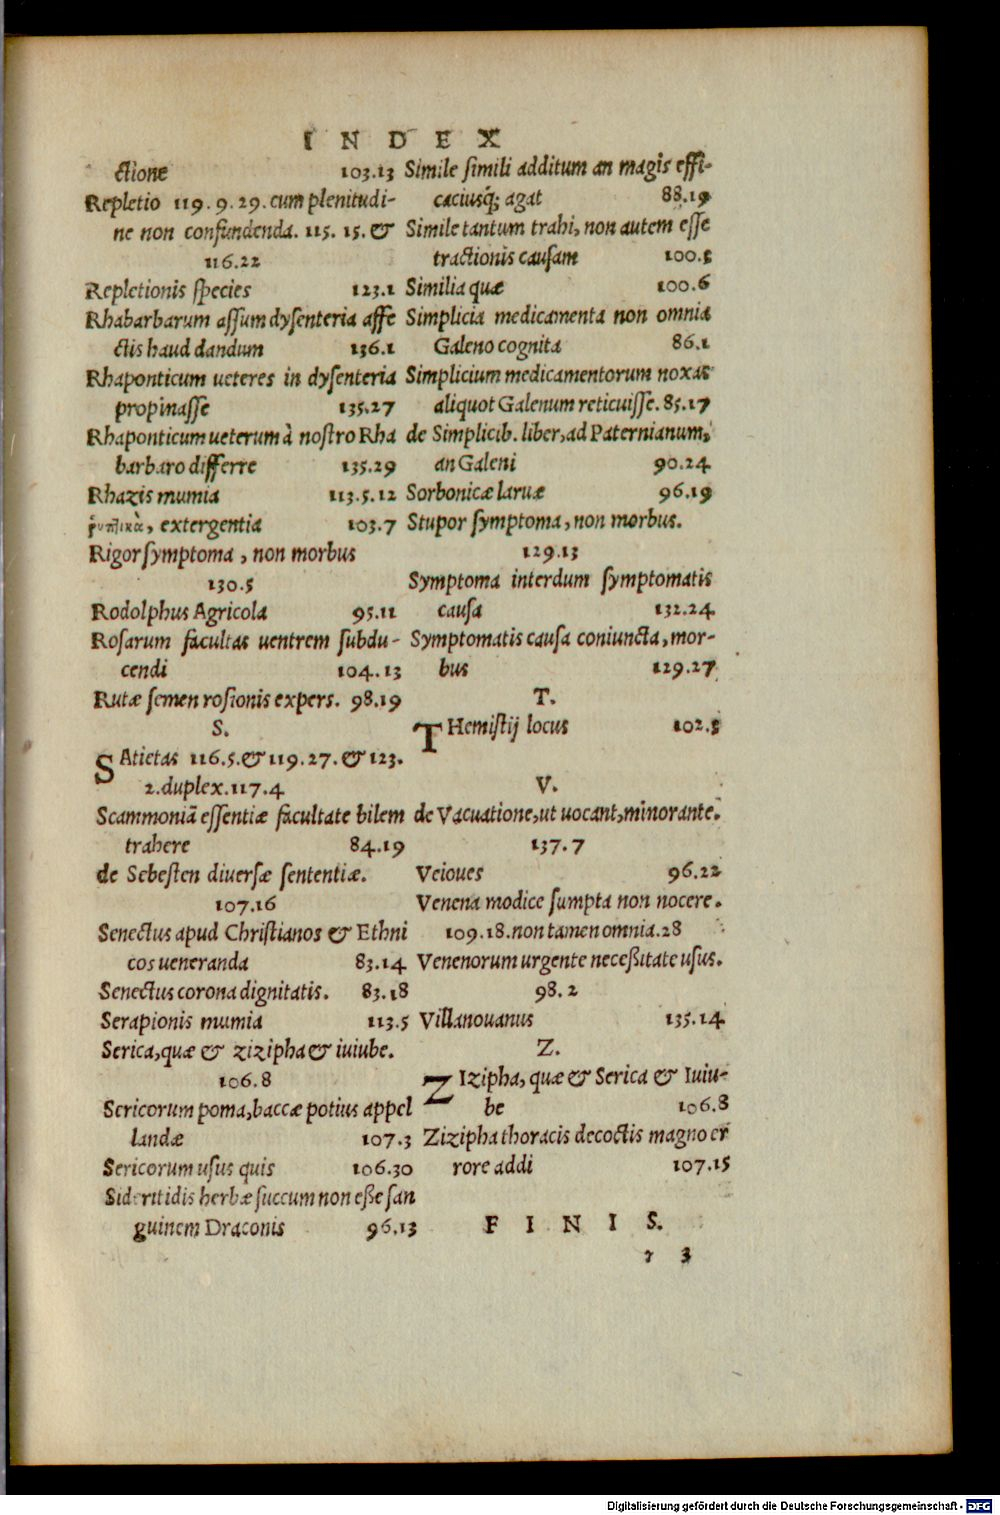 INDEX
ctione 103.13
Repletio 119.9.29. cum plenitudi-
ne non confundenda. 115. 15. &
116.22
Repletionis species 123.1
Rhabarbarum assum dysenteria affe
ctis haud dandum 136.1
Rhaponticum ueteres in dysenteria
propinasse 135.27
Rhaponticum ueterum à nostro Rha
barbaro differre 135.29
Rhazis mumia 113.5.12
ῥυπτικὰ, extergentia 103.7
Rigor symptoma, non morbus
130.5
Rodolphus Agricola 95.11
Rosarum facultas uentrem subdu-
cendi 104.13
Rutæ semen rosionis expers. 98.19
S.
SAtietas 116.5.& 119.27. & 123.
2. duplex. 117.4
Scammoniã essentiæ facultate bilem
trahere 84.19
de Sebesten diuersæ sententiæ.
107.16
Senectus apud Christianos & Ethni
cos ueneranda 83.14
Senectus corona dignitatis. 83.18
Serapionis mumia 113.5
Serica, quæ & zizipha & iuiube.
106.8
Sericorum poma, baccæ potius appel
landæ 107.3
Sericorum usus quis 106.30
Sideritidis herbæ succum non eße san
guinem Draconis 96.13
Simile simili additum an magis effi-
caciusq́; agat 88.19
Simile tantum trahi, non autem esse
tractionis causam 100.5
Similia quæ 100.6
Simplicia medicamenta non omnia
Galeno cognita 86.1
Simplicium medicamentorum noxas
aliquot Galenum reticuisse. 85.17
de Simplicib. liber, ad Paternianum,
an Galeni 90.24
Sorbonicæ laruæ 96.19
Stupor symptoma, non morbus.
129.13
Symptoma interdum symptomatis
causa 132.24
Symptomatis causa coniuncta, mor-
bus 129.27
T.
THemistij locus 102.5
V.
de Vacuatione, ut uocant, minorante.
137.7
Veioues 96.22
Venena modice sumpta non nocere.
109.18. non tamen omnia. 28
Venenorum urgente neceßitate usus.
98.2
Villanouanus 135.14
Z.
ZIzipha, quæ & Serica & Iuiu-
be 106.8
Zizipha thoracis decoctis magno er
rore addi 107.15
FINIS.
3
Digitalisierung gefördert durch die Deutsche Forschungsgemeinschaft - DFG